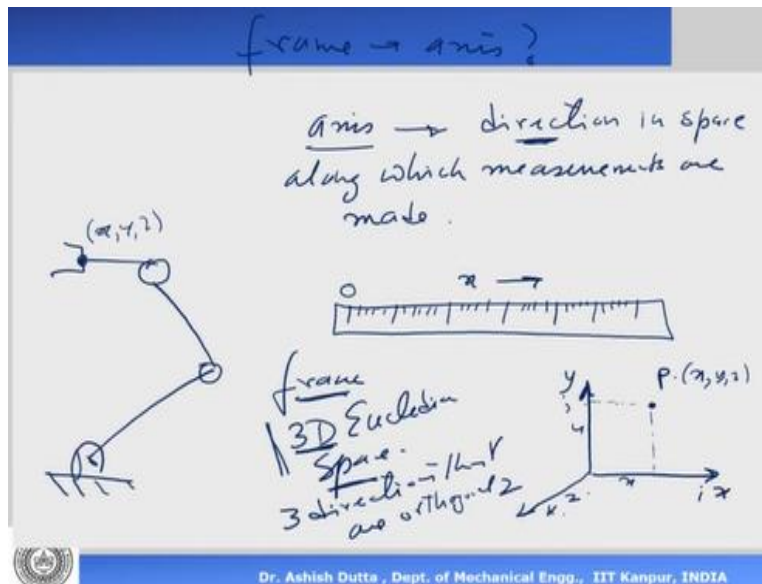 frame → axis?
axis → direction in space
along which measurements are
made.
(x,y,z)
0
x →
frame
3D Eucledian
Space.
3 directions that
are orthogonal
y
j
y
P.(x,y,z)
x
i x
z
k
Dr. Ashish Dutta , Dept. of Mechanical Engg., IIT Kanpur, INDIA